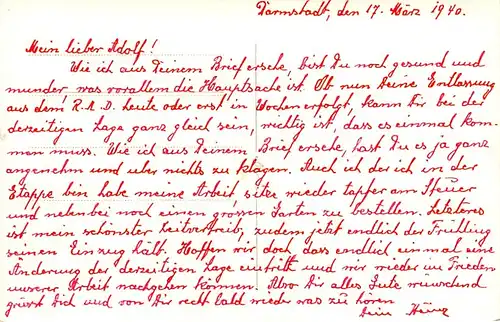 Darmstadt, den 17. März 1940.
Mein lieber Adolf!
Wie ich aus Deinem Brief ersehe, bist Du noch gesund und
munder was vorallem die Hauptsache ist. Ob nun Deine Entlassung
aus dem R.A.D. heute oder erst in Wochen erfolgt, kann Dir bei der
derzeitigen Lage ganz gleich sein, wichtig ist, dass es einmal kom-
men muss. Wie ich aus Deinem Brief ersehe, hast Du es ja ganz
angenehm und über nichts zu klagen. Auch ich der ich in der
Etappe bin habe meine Arbeit, sitze wieder tapfer am Steuer
und nebenbei noch einen grossen Garten zu bestellen. Letzteres
ist mein schönster Zeitvertreib, zudem jetzt endlich der Frühling
seinen Einzug hält. Hoffen wir doch dass endlich einmal eine
Änderung der derzeitigen Lage eintritt und wir wieder im Frieden
unserer Arbeit nachgehen können. Also Dir alles Gute wünschend
grüsst Dich und von Dir recht bald wieder was zu hören
Dein Heinz